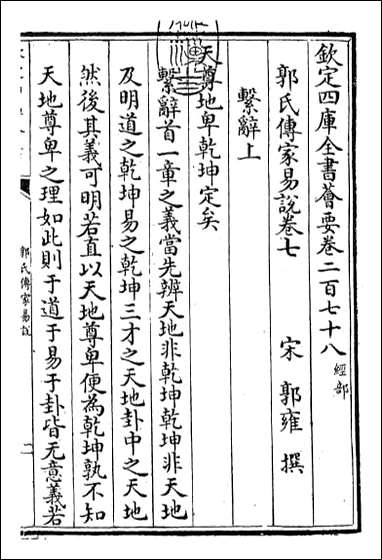 欽定四庫全書薈要卷二百七十八 經部
郭氏傳家易說卷七
宋 郭雍 撰
繫辭上
天尊地卑乾坤定矣
繫辭首一章之義當先辨天地非乾坤乾坤非天地
及明道之乾坤易之乾坤三才之天地卦中之天地
然後其義可明若直以天地尊卑便為乾坤孰不知
天地尊卑之理如此則于道于易于卦皆无意義若
郭氏傳家易說